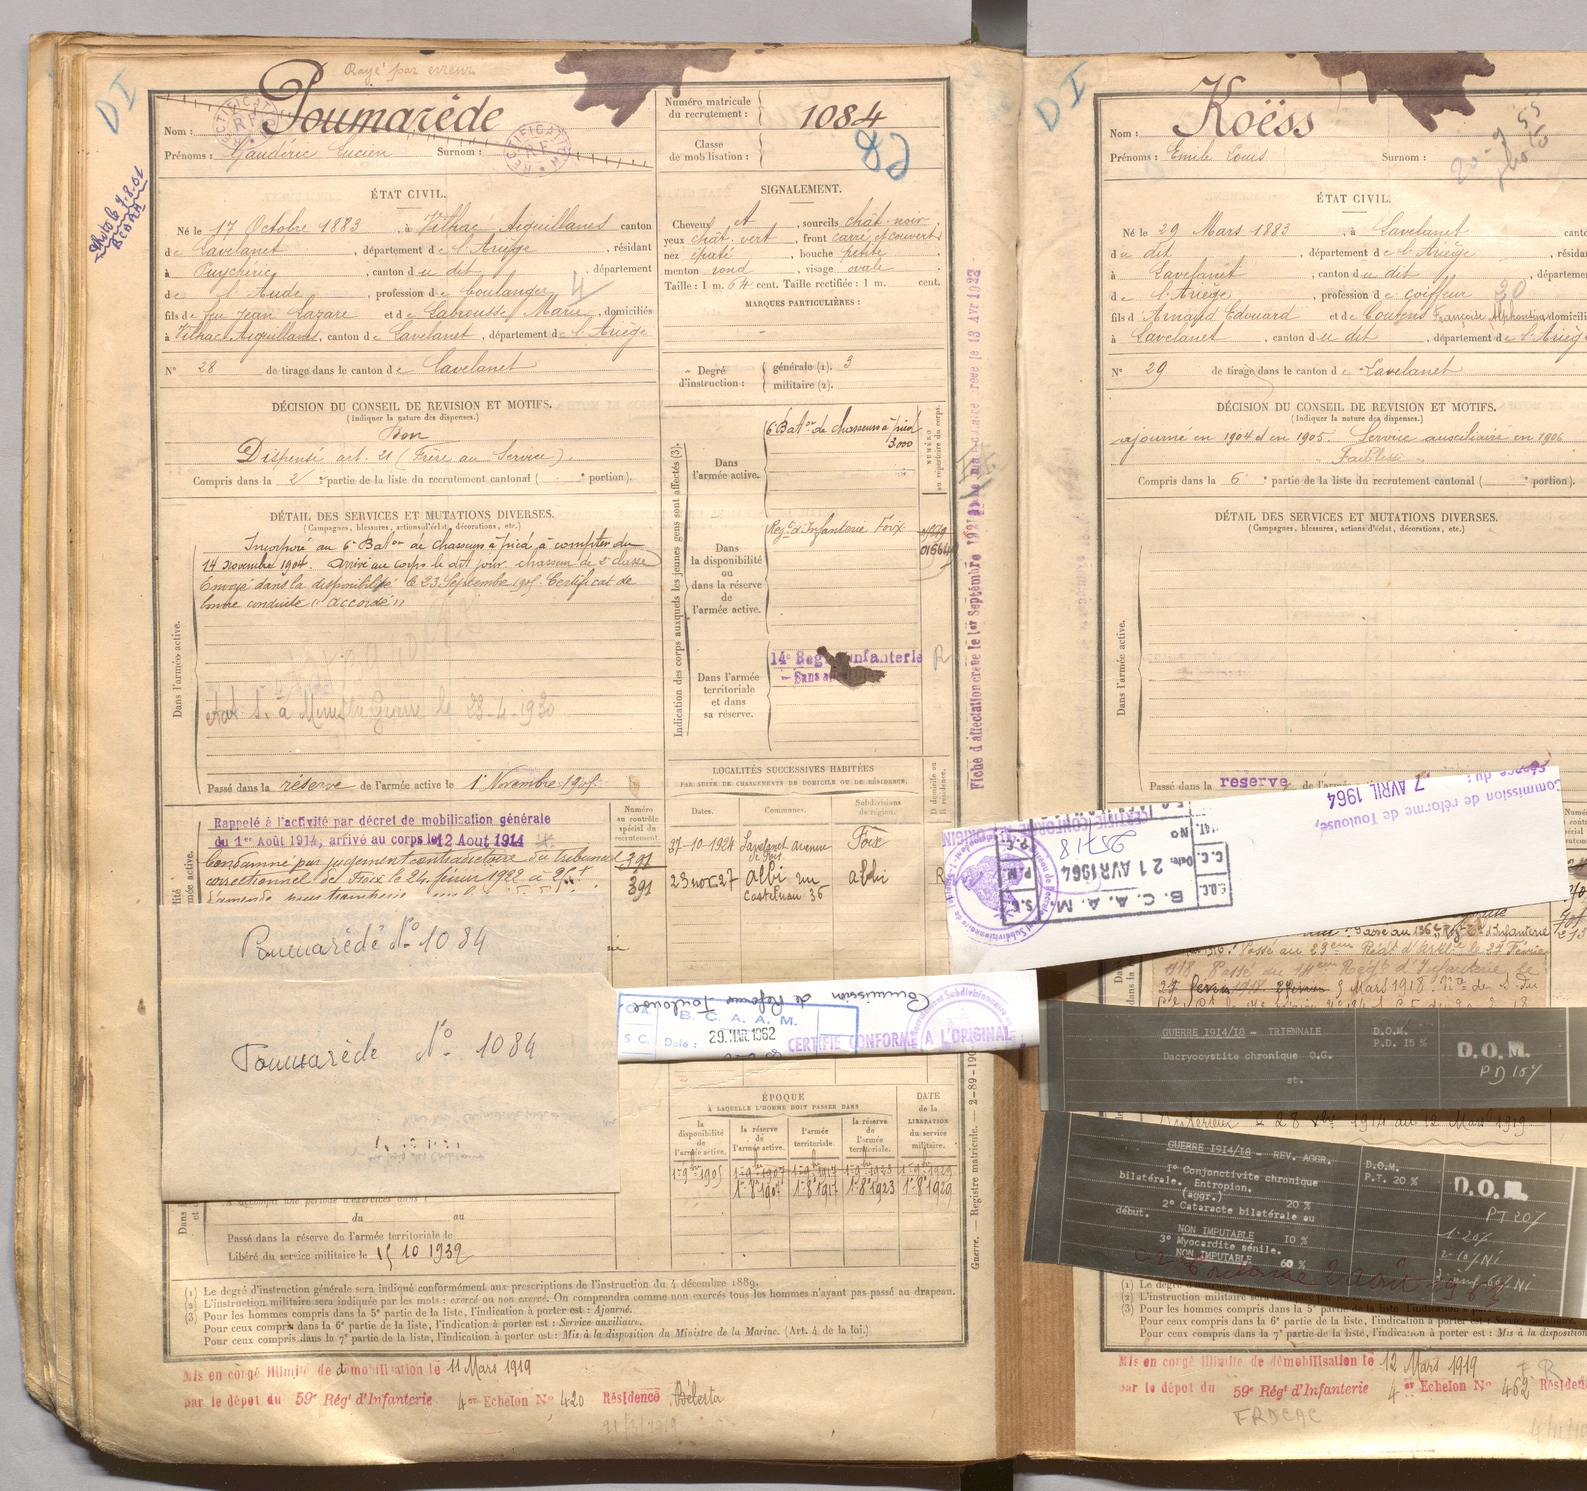 Rayé par erreur
D I
Poumarède
Nom :
Prénoms : Gaudéric Lucien Surnom :
RECTIFICATION R.F.
RECTIFICATION R.F.
Numéro matricule
du recrutement : 1084
Classe
de mobilisation :
Photo le 7.8.61
BCAAM
ÉTAT CIVIL.
Né le 17 Octobre 1883, à Vilhac Aiguillanes canton
de Lavelanet, département de l'Ariège, résidant
à Puychéric, canton du dit, département
de l'Aude, profession de boulanger
fils de feu Jean Lazare et de Labrousse Marie, domiciliés
à Vilhac Aiguillanes, canton de Lavelanet, département de l'Ariège
N° 28 de tirage dans le canton de Lavelanet
SIGNALEMENT.
Cheveux et, sourcils chât. noir
yeux chât. vert, front carré découvert
nez épaté, bouche petite
menton rond, visage ovale
Taille : 1 m. 64 cent. Taille rectifiée : 1 m. cent.
MARQUES PARTICULIÈRES :
Degré
d'instruction :
générale (1). 3
militaire (2).
DÉCISION DU CONSEIL DE REVISION ET MOTIFS.
(Indiquer la nature des dispenses.)
Bon
Dispensé art. 21 (Frère au Service).
Compris dans la 2e partie de la liste du recrutement cantonal ( e portion).
DÉTAIL DES SERVICES ET MUTATIONS DIVERSES.
(Campagnes, blessures, actions d'éclat, décorations, etc.)
Dans l'armée active.
Incorporé au 6e Baton de chasseurs à pied à compter du
14 novembre 1904. Arrivé au corps le dit jour, chasseur de 2e classe
Envoyé dans la disponibilité le 23 Septembre 1905. Certificat de
bonne conduite "accordé"
à Ministre Guerre le 23-4-1930
Passé dans la réserve de l'armée active le 1er Novembre 1907
Rappelé à l'activité par décret de mobilisation générale
du 1er Août 1914, arrivé au corps le 12 Aout 1914
Condamné par jugement contradictoire du tribunal
correctionnel de Foix le 24 février 1922 à 25 f
Numéro
au contrôle
spécial du
recrutement.
391
391
Indication des corps auxquels les jeunes gens sont affectés (3).
NUMÉRO
au répertoire du corps.
Dans
l'armée active.
6e Baton de chasseurs à pied
3000
Dans
la disponibilité
ou
dans la réserve
de
l'armée active.
Regt d'Infanterie Foix
01664
Dans l'armée
territoriale
et dans
sa réserve.
14e Reg Infanterie
R
LOCALITÉS SUCCESSIVES HABITÉES
PAR SUITE DE CHANGEMENTS DE DOMICILE OU DE RÉSIDENCE.
D domicile ou
R résidence.
Dates. Communes. Subdivisions
de région.
27-10-1924 Lavelanet avenue
de Foix
23 nov. 27 Albi rue Albi R
Castelnau 36
Poumarède N° 1084
Poumarède N° 1084
Commission
de Réforme Toulouse
B. C. A. A. M.
S C. Date : 29 MAR. 1962
CERTIFIE CONFORME A L'ORIGINAL
ÉPOQUE
À LAQUELLE L'HOMME DOIT PASSER DANS
DATE
de la
LIBÉRATION
du service
militaire.
la
disponibilité
de
l'armée active.
la réserve
de
l'armée active.
l'armée
territoriale.
la réserve
de
l'armée
territoriale.
1er 9bre 1905 1er 9bre 1907 1er 9bre 1917 1er 9bre 1923 1er 9bre 1929
1er 8 1907 1er 8 1917 1er 8 1923 1er 8 1929
A accompli une période d'exercices dans l
du au
Passé dans la réserve de l'armée territoriale le
Libéré du service militaire le 15 10 1932
(1) Le degré d'instruction générale sera indiqué conformément aux prescriptions de l'instruction du 4 décembre 1889.
(2) L'instruction militaire sera indiquée par les mots : exercé ou non exercé. On comprendra comme non exercés tous les hommes n'ayant pas passé au drapeau.
(3) Pour les hommes compris dans la 5e partie de la liste, l'indication à porter est : Ajourné.
Pour ceux compris dans la 6e partie de la liste, l'indication à porter est : Service auxiliaire.
Pour ceux compris dans la 7e partie de la liste, l'indication à porter est : Mis à la disposition du Ministre de la Marine. (Art. 4 de la loi.)
Mis en congé illimité de démobilisation le 11 Mars 1919
par le dépôt du 59e Régt d'Infanterie 4e Echelon N° 420 Résidence Bélesta
Guerre. — Registre matricule. —
D I
Koëss
Nom :
Prénoms : Emile Louis Surnom :
ÉTAT CIVIL.
Né le 29 Mars 1883, à Lavelanet
du dit, département de l'Ariège
à Lavelanet, canton du dit
de l'Ariège, profession de coiffeur
20
fils d'Arnaud Edouard et de Coutens Françoise Alphonsine
à Lavelanet, canton du dit, département de l'Ariège
N° 29 de tirage dans le canton de Lavelanet
DÉCISION DU CONSEIL DE REVISION ET MOTIFS.
(Indiquer la nature des dispenses.)
ajourné en 1904 et en 1905. Service auxiliaire en 1906
Faiblesse
Compris dans la 6e partie de la liste du recrutement cantonal ( e portion).
DÉTAIL DES SERVICES ET MUTATIONS DIVERSES.
(Campagnes, blessures, actions d'éclat, décorations, etc.)
Dans l'armée active.
Passé dans la réserve
Commission de réforme de Toulouse,
séance du : 7 AVRIL 1964
B. C. A. A. M.
Date: 21 AVR 1964
No 25718
CERTIFIE CONFORME A L'ORIGINAL
Passé au 136e Rgt d'Infanterie
Passé au 23eme Régt d'Artie le 27 Février
1918 Passé au 14eme Régt d'Infanterie le
3 Mars 1918
GUERRE 1914/18 - TRIENNALE
Dacryocystite chronique O.G.
st.
D.O.M.
P.D. 15 %
D.O.M.
PD 15%
Intérieur 28 1914 au 12 Mars 1919
GUERRE 1914/18 - REV. AGGR.
1° Conjonctivite chronique
bilatérale. Entropion.
(aggr.) 20 %
2° Cataracte bilatérale au
début.
NON IMPUTABLE 10 %
3° Myocardite sénile.
NON IMPUTABLE 60 %
D.O.M.
P.T. 20 %
D.O.M.
PT 20%
1-20%
2-10% NI
60% NI
Pour ceux compris dans la 6e partie de la liste, l'indication à porter est : Service auxiliaire.
Pour ceux compris dans la 7e partie de la liste, l'indication à porter est : Mis à la disposition
Mis en congé illimité de démobilisation le 12 Mars 1919
par le dépôt du 59e Régt d'Infanterie 4e Echelon N° 462 Résidence
FRDCAC